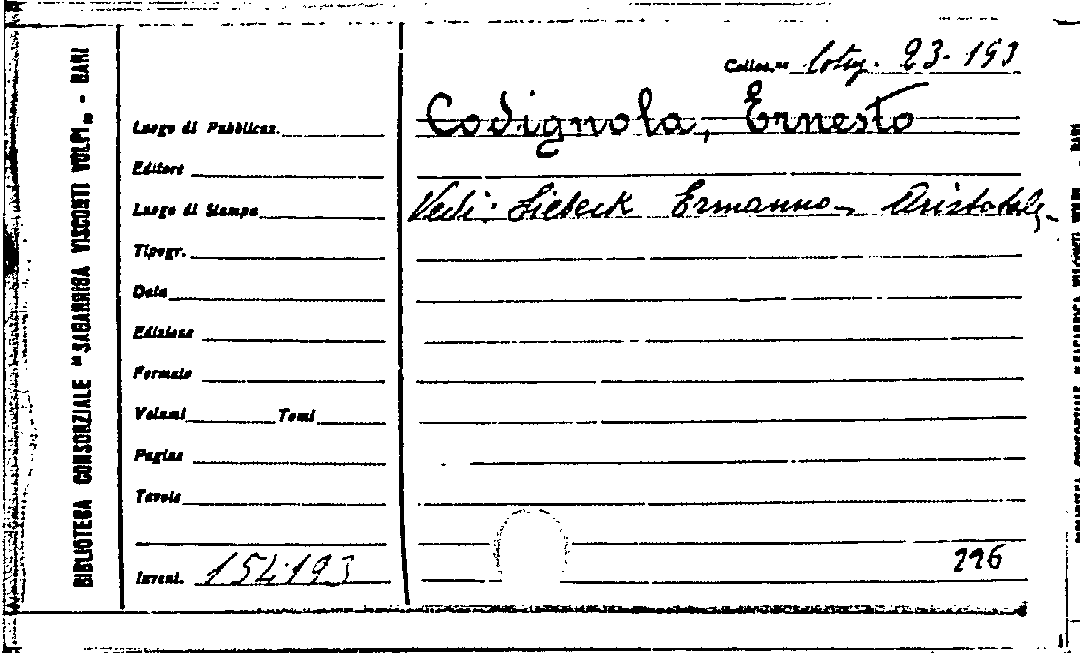 BIBLIOTECA CONSORZIALE "SAGARRIGA VISCONTI VOLPI" - BARI
Colloc.ne 23-193
Codignola, Ernesto
Vedi: Siebeck Ermanno - Aristotele -
Luogo di Pubblicaz.
Editore
Luogo di Stampa
Tipogr.
Data
Edizione
Formato
Volumi Tomi
Pagine
Tavole
Invent. 154193
226